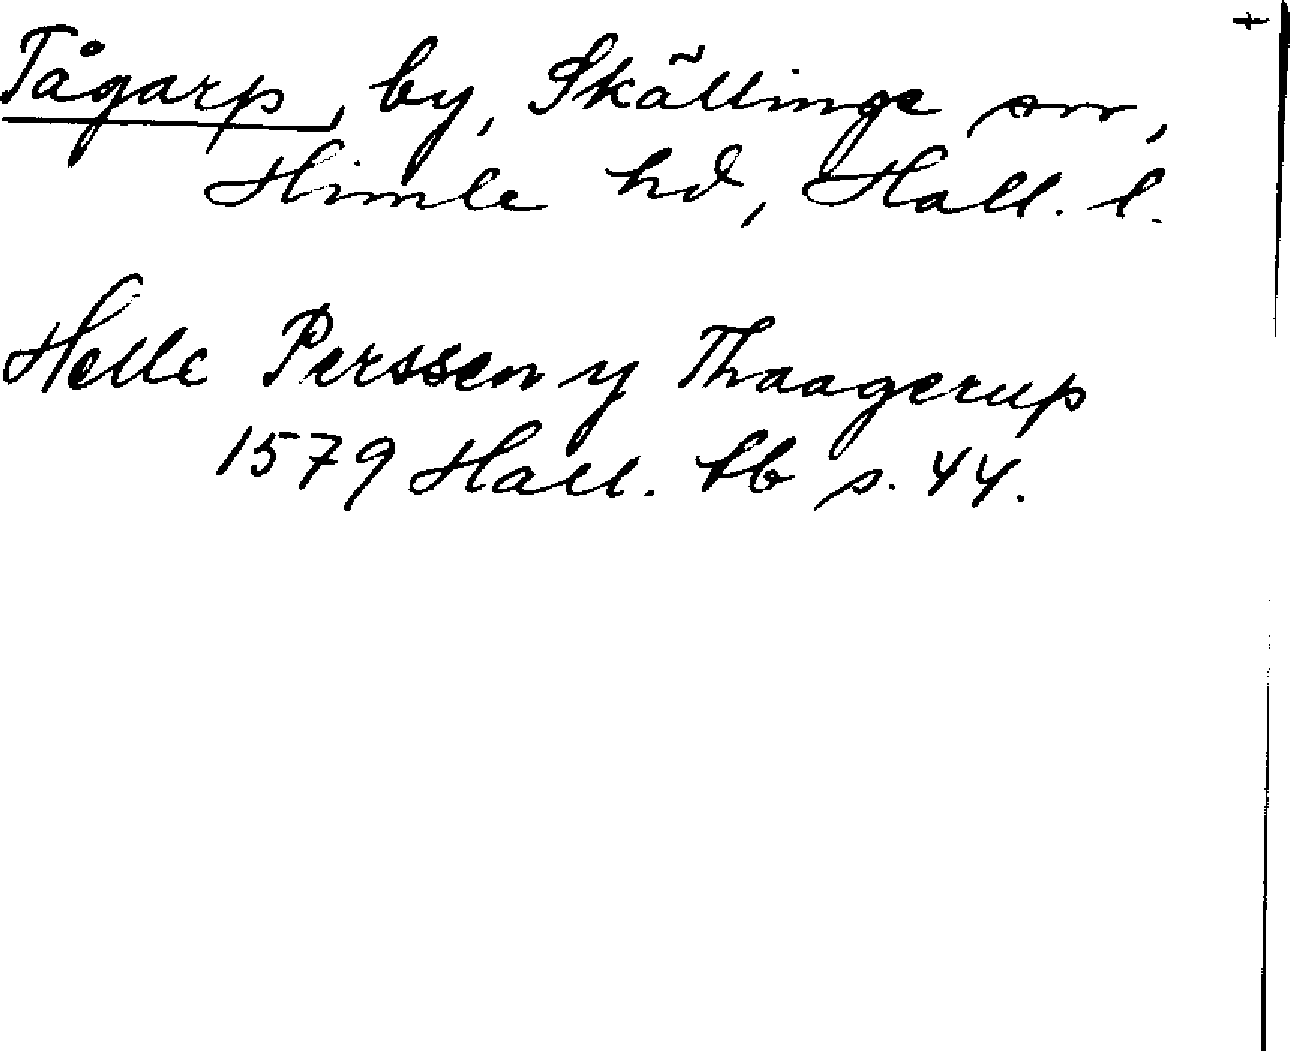 Tågarp, by, Skällinge sn,
Himle hd, Hall. l.
Helle Perssen y Thaagerup
1579 Hall. lb s. 44.